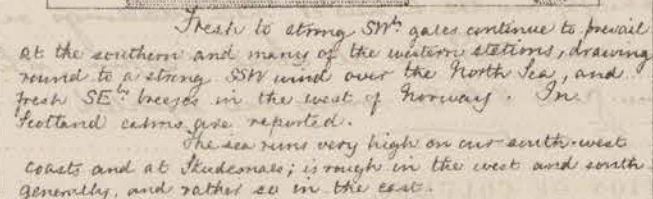 Fresh to strong SWly gales continue to prevail
at the southern and many of the western stations, drawing
round to a strong SSW wind over the North Sea, and
fresh SEly breezes in the west of Norway. In
Scotland calms are reported.
The sea runs very high on our south-west
coasts and at Skudesnaes; is rough in the west and south
generally, and rather so in the east.